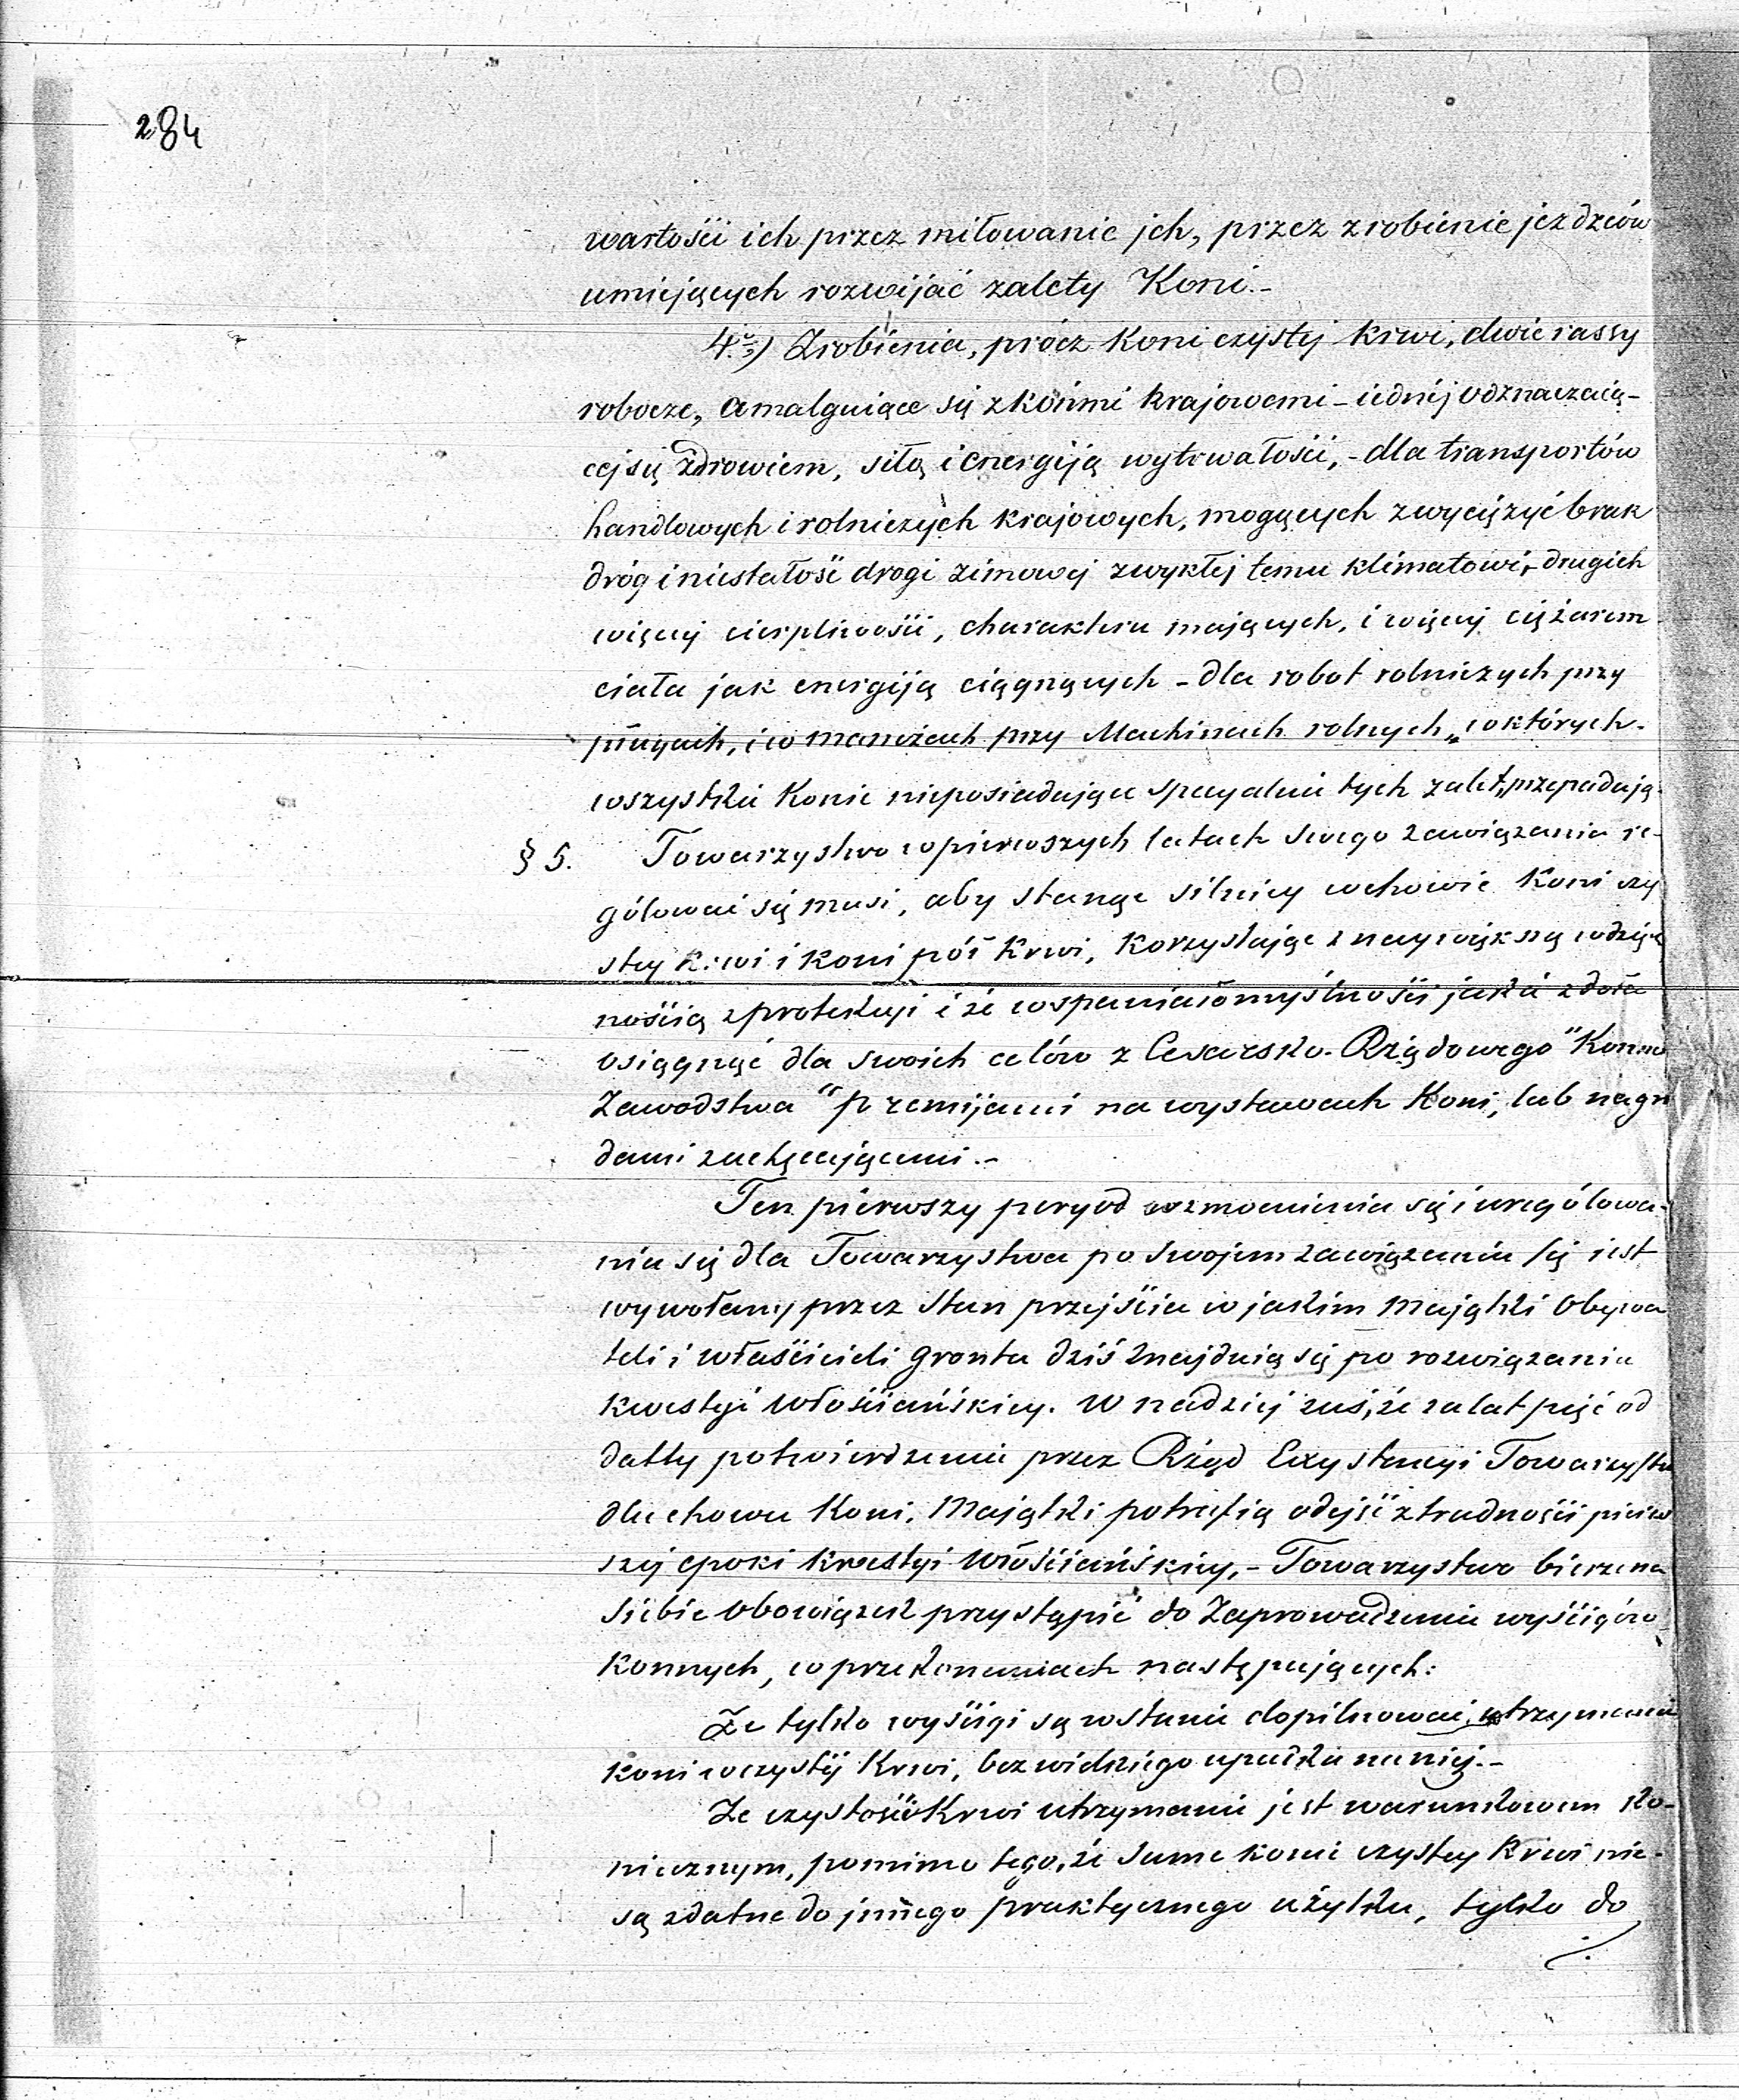 284
wartości ich przez miłowanie jch, przez zrobienie jezdzców
umiejących rozwijać zalety Koni.-
4.o) Zrobienia, prócz Koni czystej krwi, dwie rassy
robocze, amalguiące się z końmi krajowemi - iednéj odznaczaią-
cej się zdrowiem, siłą i energiją wytrwałości, - dla transportów
handlowych i rolniczych krajowych, mogących zwyciężyć brak
dróg i niestałość drogi zimowej zwykłej temu klimatowi, - drugich
więcej cierpliwości, charakteru mających, i więcej ciężarem
ciała jak energiją ciągnących - dla robot rolniczych przy
pługach, i w maneżach przy Machinach rolnych, w których
wszystkie Konie nieposiadające specyalnie tych zalet, przepadają.
§ 5. Towarzystwo w pierwszych latach swego zawiązania re-
gólować się musi, aby stanąć silniey w chowie Koni czy
stey krwi i koni pół krwi, korzystając z naywiększą wdzięcz
nością z protekcyi i ze wspaniałomyślności jaką zdoła
osiągnąć dla swoich celów z Cesarsko-Rządowego "Konno
Zawodstwa" premijami na wystawach Koni, lub nagro
dami zachęcającemi.-
Ten pierwszy peryod wzmocnienia się i urególowa-
nia się dla Towarzystwa po swojem zawiązaniu się jest
wywołany przez Stan przejścia w jakim majątki Obywa
teli i właścicieli gronta dziś znajduią się po rozwiązaniu
kwestyi włościańskiey. W nadziei zaś, że za lat pięć od
datty potwierdzenia przez Rząd Exystencyi Towarzystwa
dla chowu Koni, Majątki potrafią odejść z trudności pierw
széj epoki kwestyi włościańskiey, - Towarzystwo bierze na
siebie obowiązek przystąpić do Zaprowadzenia wyścigów
konnych, w przekonaniach następujących:
Że tylko wyścigi są w stanie dopilnować utrzymania
koni w czystéj Krwi, bez wielkiego upadku na niéj.-
Że czystości Krwi utrzymanie jest warunkowem ko-
niecznym, pomimo tego, że Same konie czystey Krwi nie-
są zdatne do innego praktycznego użytku, tylko do